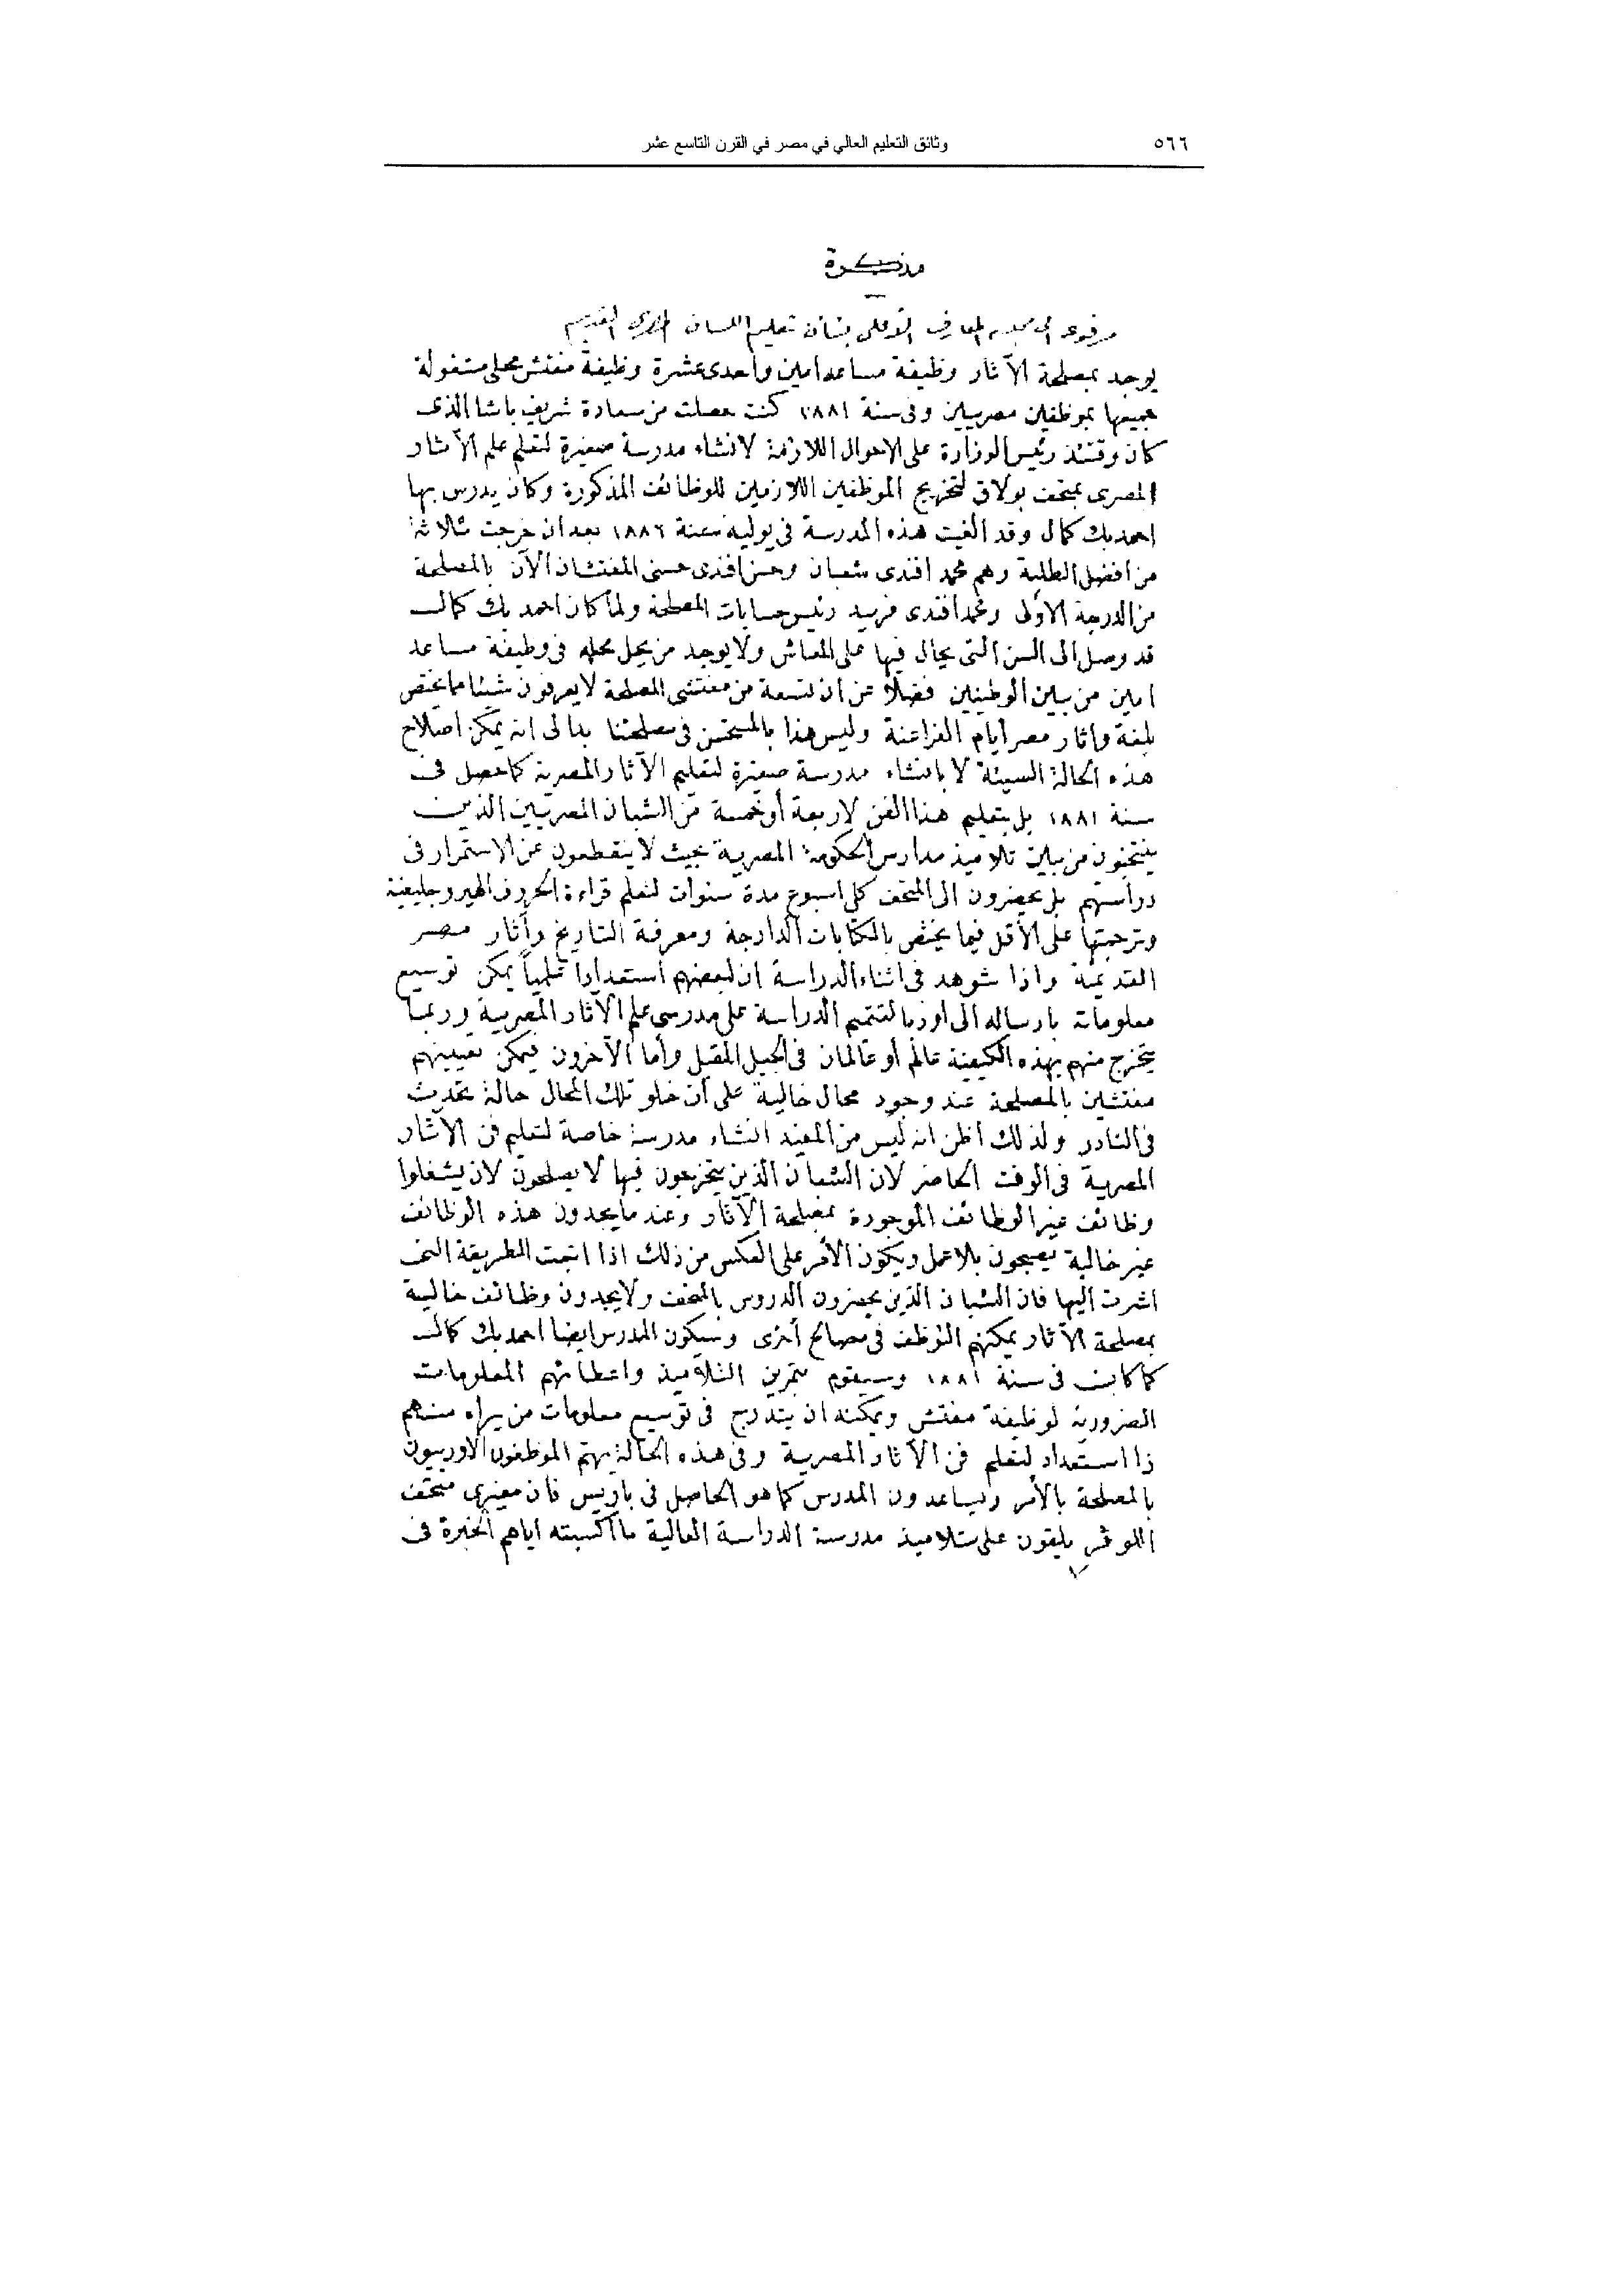 ٥٦٦
وثائق التعليم العالي في مصر في القرن التاسع عشر
مذكرة
مرفوعة الى مجلس المعارف الأعلى بشأن تعليم اللسان المصري القديم
يوجد بمصلحة الآثار وظيفة مساعد امين واحدى عشرة وظيفة مفتش محلى مشغولة
جميعها بموظفين مصريين وفى سنة ١٨٨١ كنت حصلت من سعادة شريف باشا الذى
كان وقتئذ رئيس الوزارة على الاموال اللازمة لانشاء مدرسة صغيرة لتعلم علم الآثار
المصرى بمتحف بولاق لتخريج الموظفين اللازمين للوظائف المذكورة وكان يدرس بها
احمد بك كمال وقد الغيت هذه المدرسة فى يوليه سنة ١٨٨٦ بعد ان خرجت ثلاثة
من افضل الطلبة وهم محمد افندى شعبان وحسن افندى حسنى المفتشان الآن بالمصلحة
من الدرجة الأولى ومحمد افندى فريد رئيس حسابات المصلحة ولما كان احمد بك كمال
قد وصل الى السن التى يحال فيها على المعاش ولا يوجد من يحل محله فى وظيفة مساعد
امين من بين الوطنيين فضلا عن ان تسعة من مفتشى المصلحة لا يعرفون شيئا مما يختص
بلغة واثار مصر أيام الفراعنة وليس هذا بالمستحسن فى مصلحتنا بدا لى انه يمكن اصلاح
هذه الحالة السيئة لا بانشاء مدرسة صغيرة لتعليم الآثار المصرية كما حصل فى
سنة ١٨٨١ بل بتعليم هذا الفن لاربعة أو خمسة من الشبان المصريين الذين
ينتخبون من بين تلاميذ مدارس الحكومة المصرية بحيث لا ينقطعون عن الاستمرار فى
دراستهم بل يحضرون الى المتحف كل اسبوع مدة سنوات لتعلم قراءة الحروف الهيروجليفية
وترجمتها على الأقل فيما يختص بالكتابات الدارجة ومعرفة التاريخ وآثار مصر
القديمة واذا شوهد فى اثناء الدراسة ان لبعضهم استعدادا علمياً يمكن توسيع
معلوماته بارساله الى اوربا لتتميم الدراسة على مدرسى علم الآثار المصرية وربما
يتخرج منهم بهذه الكيفية عالم أو عالمان فى الجيل المقبل وأما الآخرون فيمكن تعيينهم
مفتشين بالمصلحة عند وجود محال خالية على أن خلو تلك المحال حالة تحدث
فى النادر ولذلك أظن انه ليس من المفيد انشاء مدرسة خاصة لتعليم فن الآثار
المصرية فى الوقت الحاضر لان الشبان الذين يتخرجون فيها لا يصلحون لان يشغلوا
وظائف غير الوظائف الموجودة بمصلحة الآثار وعند ما يجدون هذه الوظائف
غير خالية يصبحون بلا عمل ويكون الأمر على العكس من ذلك اذا اتبعت الطريقة التى
اشرت اليها فان الشبان الذين يحضرون الدروس بالمتحف ولا يجدون وظائف خالية
بمصلحة الآثار يمكنهم التوظف فى مصالح أخرى وسيكون المدرس ايضا احمد بك كمال
كما كانت فى سنة ١٨٨١ وسيقوم بتمرين التلاميذ واعطائهم المعلومات
الضرورية لوظيفة مفتش ويمكنه ان يتدرج فى توسيع معلومات من يراه منهم
ذا استعداد لتعلم فن الآثار المصرية وفى هذه الحالة يهتم الموظفون الاوربيون
بالمصلحة بالأمر ويساعدون المدرس كما هو الحاصل فى باريس فان مفتشى متحف
اللوڤر يلقون على تلاميذ مدرسة الدراسة العالية ما اكسبته اياهم الخبرة فى